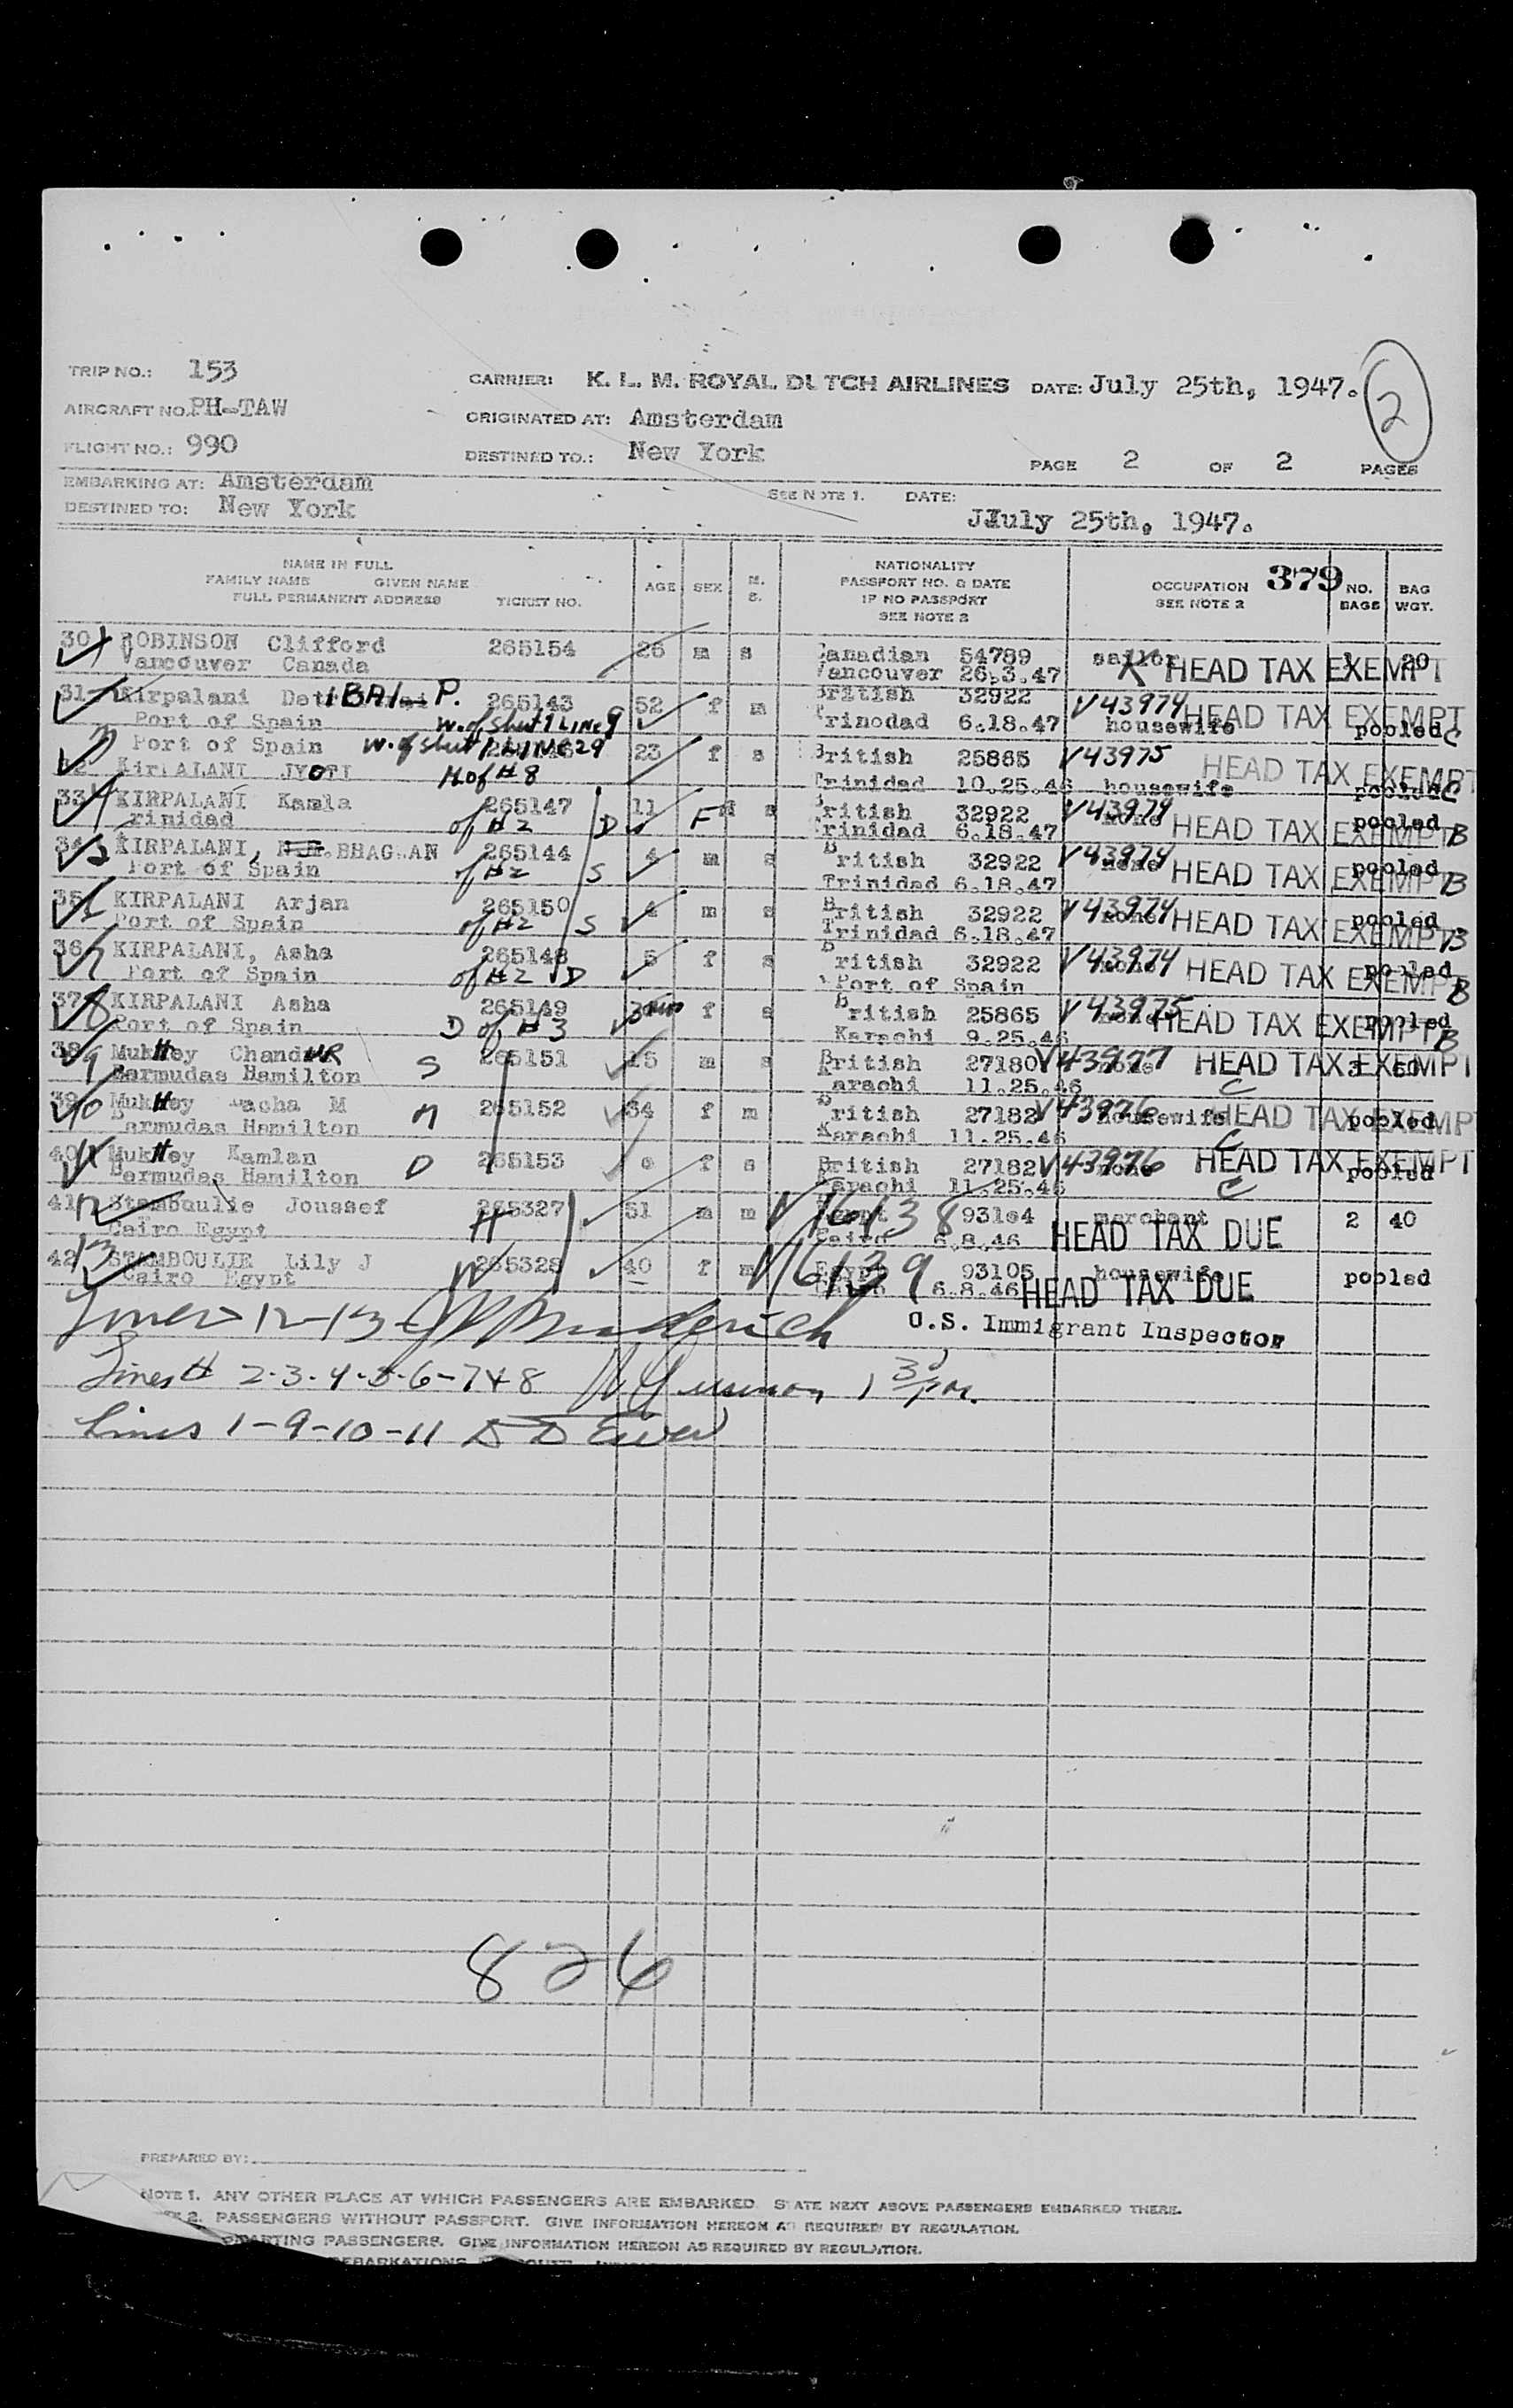 TRIP NO.: 153
CARRIER: K. L. M. ROYAL DUTCH AIRLINES DATE: July 25th, 1947. 2
AIRCRAFT NO. PH-TAW
ORIGINATED AT: Amsterdam
FLIGHT NO.: 990
DESTINED TO.: New York
PAGE 2 OF 2 PAGES
EMBARKING AT: Amsterdam
SEE NOTE 1. DATE:
DESTINED TO: New York
July 25th, 1947.
NAME IN FULL
FAMILY NAME GIVEN NAME
FULL PERMANENT ADDRESS TICKET NO.
AGE SEX M. S.
NATIONALITY
PASSPORT NO. & DATE
IF NO PASSPORT
SEE NOTE 2
OCCUPATION 379
SEE NOTE 2
NO. BAGS
BAG WGT.
30 1 ROBINSON Clifford 265154 26 m s Canadian 54789 sailor K HEAD TAX EXEMPT 1 20
Vancouver Canada Vancouver 26.3.47
31 Kirpalani IBAI P. 265143 52 f m British 32922 V43974 HEAD TAX EXEMPT
Port of Spain W. of Sheet 1 LINE 9 6.18.47 housewife pooled C
3 Port of Spain W. of Sheet 1 LINE 29 23 f s British 25865 V43975 HEAD TAX EXEMPT
32 KIRPALANI JYOTI M of #8 Trinidad 10.25.46 housewife pooled C
33 4 KIRPALANI Kamla 265147 11 F s British 32922 V43974 none pooled
Trinidad of #2 D Trinidad 6.18.47 HEAD TAX EXEMPT B
34 5 KIRPALANI, BHAGWAN 265144 4 m s British 32922 V43974 none pooled
Port of Spain of #2 S Trinidad 6.18.47 HEAD TAX EXEMPT B
35 6 KIRPALANI Arjan 265150 4 m s British 32922 V43974 none pooled
Port of Spain of #2 S Trinidad 6.18.47 HEAD TAX EXEMPT B
36 7 KIRPALANI, Asha 265148 5 f s British 32922 V43974 none pooled
Port of Spain of #2 D Port of Spain HEAD TAX EXEMPT B
37 8 KIRPALANI Asha 265149 f s British 25865 V43975 none pooled
Port of Spain D of #3 Karachi 9.25.46 HEAD TAX EXEMPT B
38 9 MukHey Chand 265151 15 m s British 27180 V43977 none HEAD TAX EXEMPT
Bermudas Hamilton S Karachi 11.25.46 C
39 10 MukHey M 265152 34 f m British 27182 V43976 housewife HEAD TAX EXEMPT pooled
Bermudas Hamilton M Karachi 11.25.46 C
40 11 MukHey Kamlan 265153 f s British 27182 V43976 none HEAD TAX EXEMPT pooled
Bermudas Hamilton D Karachi 11.25.46 C
41 12 Stamboulie Joussef 265327 51 m m Egypt 93104 merchant 2 40
Cairo Egypt H V16138 Cairo 6.8.46 HEAD TAX DUE
42 13 STAMBOULIE Lily J 265328 40 f m Egypt 93105 housewife pooled
Cairo Egypt W V16139 Cairo 6.8.46 HEAD TAX DUE
Lines 12-13
U.S. Immigrant Inspector
Lines # 2-3-4-5-6-7+8 1 30 PM.
Lines 1-9-10-11
826
PREPARED BY:
NOTE 1. ANY OTHER PLACE AT WHICH PASSENGERS ARE EMBARKED STATE NEXT ABOVE PASSENGERS EMBARKED THERE.
2. PASSENGERS WITHOUT PASSPORT. GIVE INFORMATION HEREON AS REQUIRED BY REGULATION.
PARTING PASSENGERS. GIVE INFORMATION HEREON AS REQUIRED BY REGULATION.